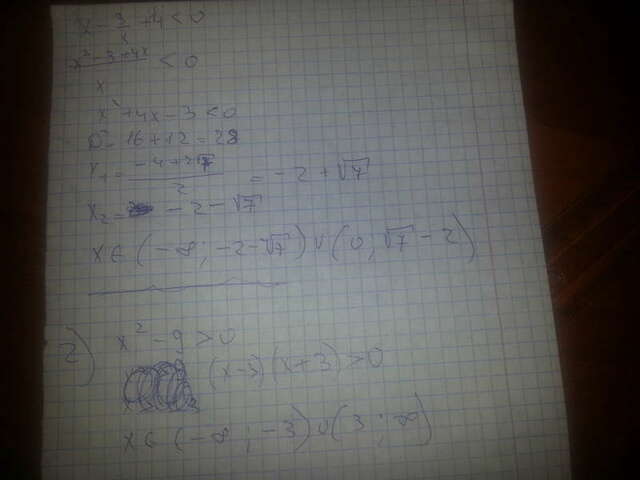 x - 3/x + 4 < 0
(x² - 3 + 4x)/x < 0
x² + 4x - 3 < 0
D = 16 + 12 = 28
x₁ = (-4 + 2√7)/2 = -2 + √7
x₂ = -2 - √7
x ∈ (-∞; -2-√7) ∪ (0; √7 - 2)
2) x² - 9 > 0
(x-3)(x+3) > 0
x ∈ (-∞; -3) ∪ (3; ∞)